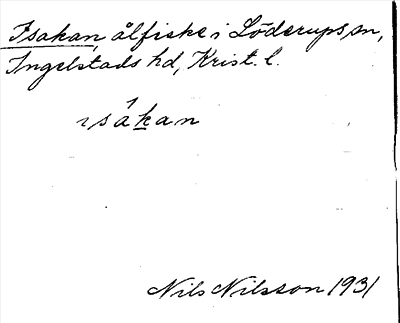 Isakan, ålfiske i Löderups sn,
Ingelstads hd, Krist. l.
ɩsákan
Nils Nilsson 1931